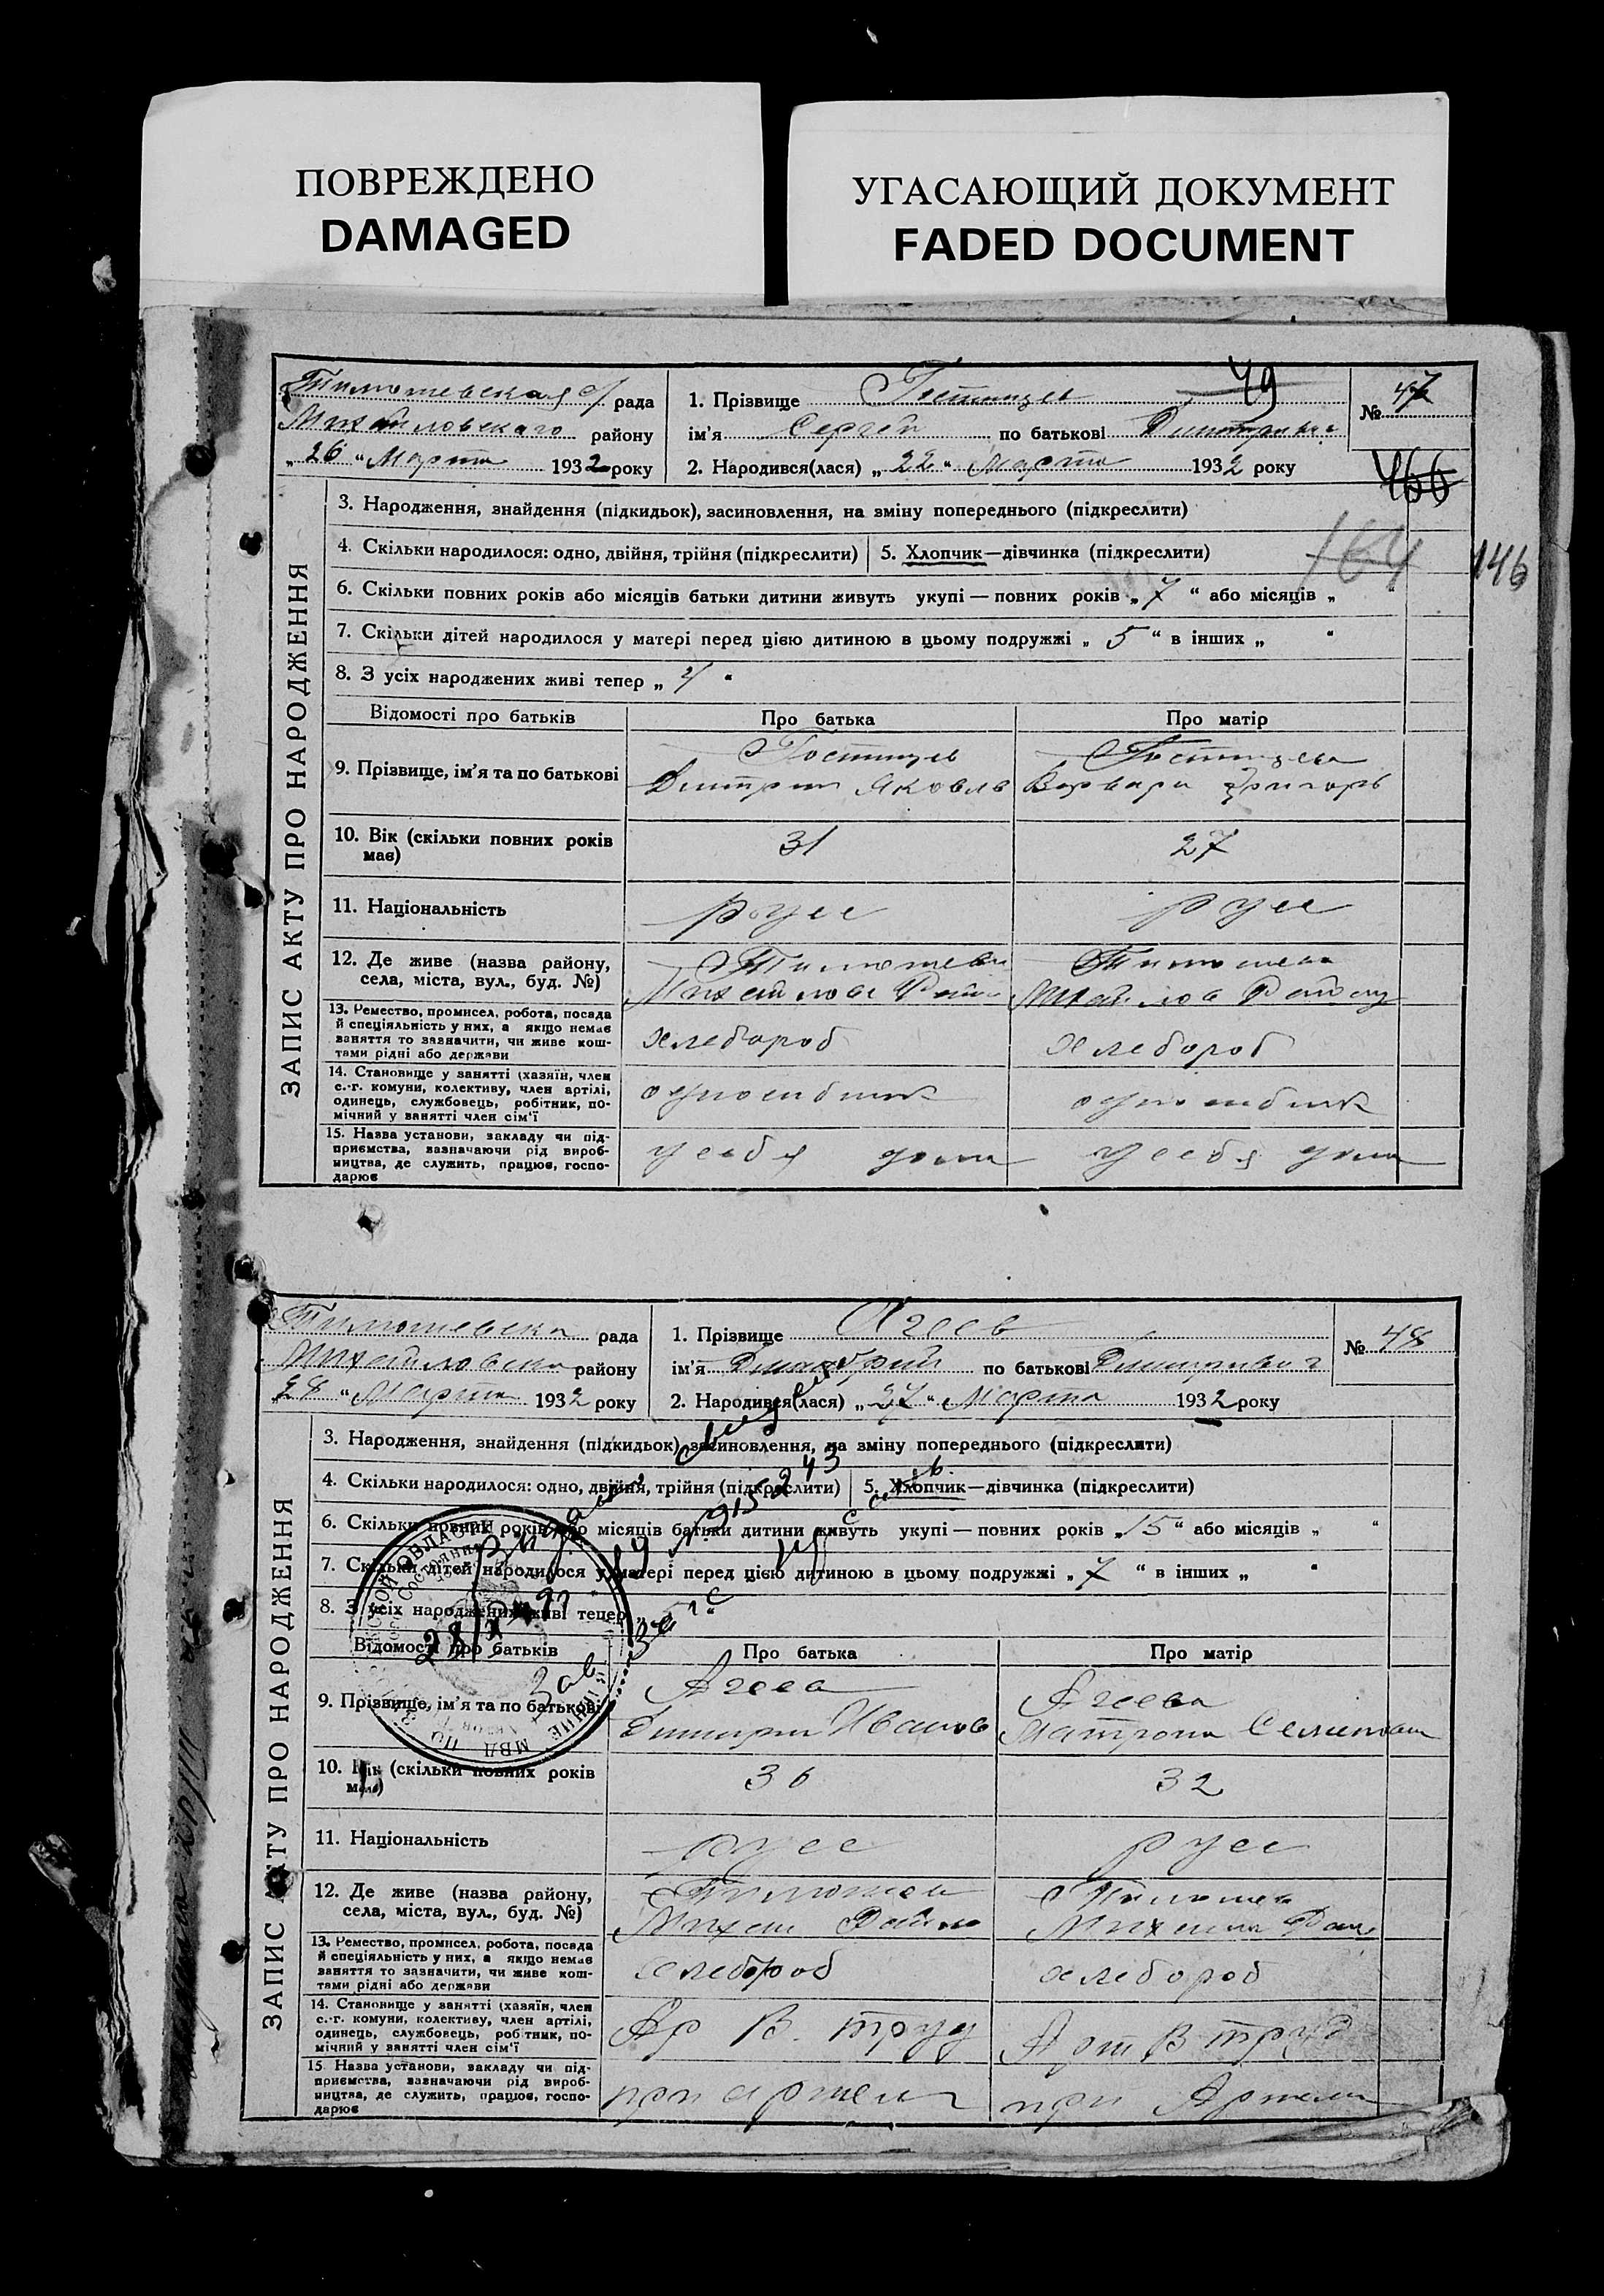 ПОВРЕЖДЕНО
DAMAGED
УГАСАЮЩИЙ ДОКУМЕНТ
FADED DOCUMENT
Тимошевская с/ рада
Михайловского району
„26“ Марта 1932 року
1. Прізвище Гостищев
ім'я Сергей по батькові
2. Народився(лася) „22“ Марта 1932 року
49
№ 47
166
164
146
ЗАПИС АКТУ ПРО НАРОДЖЕННЯ
3. Народження, знайдення (підкидьок), засиновлення, на зміну попереднього (підкреслити)
4. Скільки народилося: одно, двійня, трійня (підкреслити) 5. Хлопчик—дівчинка (підкреслити)
6. Скільки повних років або місяців батьки дитини живуть укупі — повних років „7“ або місяців „ “
7. Скільки дітей народилося у матері перед цією дитиною в цьому подружжі „5“ в інших „ “
8. З усіх народжених живі тепер „4“
Відомості про батьків Про батька Про матір
9. Прізвище, ім'я та по батькові
Гостищев Гостищева
Дмитрий Яковлев Варвара Григорь
10. Вік (скільки повних років
має)
31 27
11. Національність русс русс
12. Де живе (назва району,
села, міста, вул., буд. №)
Тимошев Тимошев
13. Ремество, промисел, робота, посада
й спеціяльність у них, а якщо немає
заняття то зазначити, чи живе кош-
тами рідні або держави
хлебороб хлебороб
14. Становище у занятті (хазяїн, член
с.-г. комуни, колективу, член артілі,
одинець, службовець, робітник, по-
мічний у занятті член сім'ї
одноосибник одноосибник
15. Назва установи, закладу чи під-
приємства, зазначаючи рід вироб-
ництва, де служить, працює, госпо-
дарює
у себя дома у себя дома
Тимошевска рада
Михайловска району
„28“ Марта 1932 року
1. Прізвище Агеев
ім'я Дмитрий по батькові Дмитриевич
2. Народився(лася) „27“ Марта 1932 року
№ 48
ЗАПИС АКТУ ПРО НАРОДЖЕННЯ
3. Народження, знайдення (підкидьок), засиновлення, на зміну попереднього (підкреслити)
4. Скільки народилося: одно, двійня, трійня (підкреслити) 5. Хлопчик—дівчинка (підкреслити)
6. Скільки повних років або місяців батьки дитини живуть укупі — повних років „15“ або місяців „ “
7. Скільки дітей народилося у матері перед цією дитиною в цьому подружжі „7“ в інших „ “
8. З усіх народжених живі тепер
Відомості про батьків Про батька Про матір
МВД
9. Прізвище, ім'я та по батькові
Агеев Агеева
Дмитрий Иванов Матрона Семенова
10. Вік (скільки повних років
має)
36 32
11. Національність русс русс
12. Де живе (назва району,
села, міста, вул., буд. №)
Тимошев Тимошев
13. Ремество, промисел, робота, посада
й спеціяльність у них, а якщо немає
заняття то зазначити, чи живе кош-
тами рідні або держави
хлебороб хлебороб
14. Становище у занятті (хазяїн, член
с.-г. комуни, колективу, член артілі,
одинець, службовець, робітник, по-
мічний у занятті член сім'ї
Ар В. труд Арт В труд
15 Назва установи, закладу чи під-
приємства, зазначаючи рід вироб-
ництва, де служить, працює, госпо-
дарює
при артели при Артели